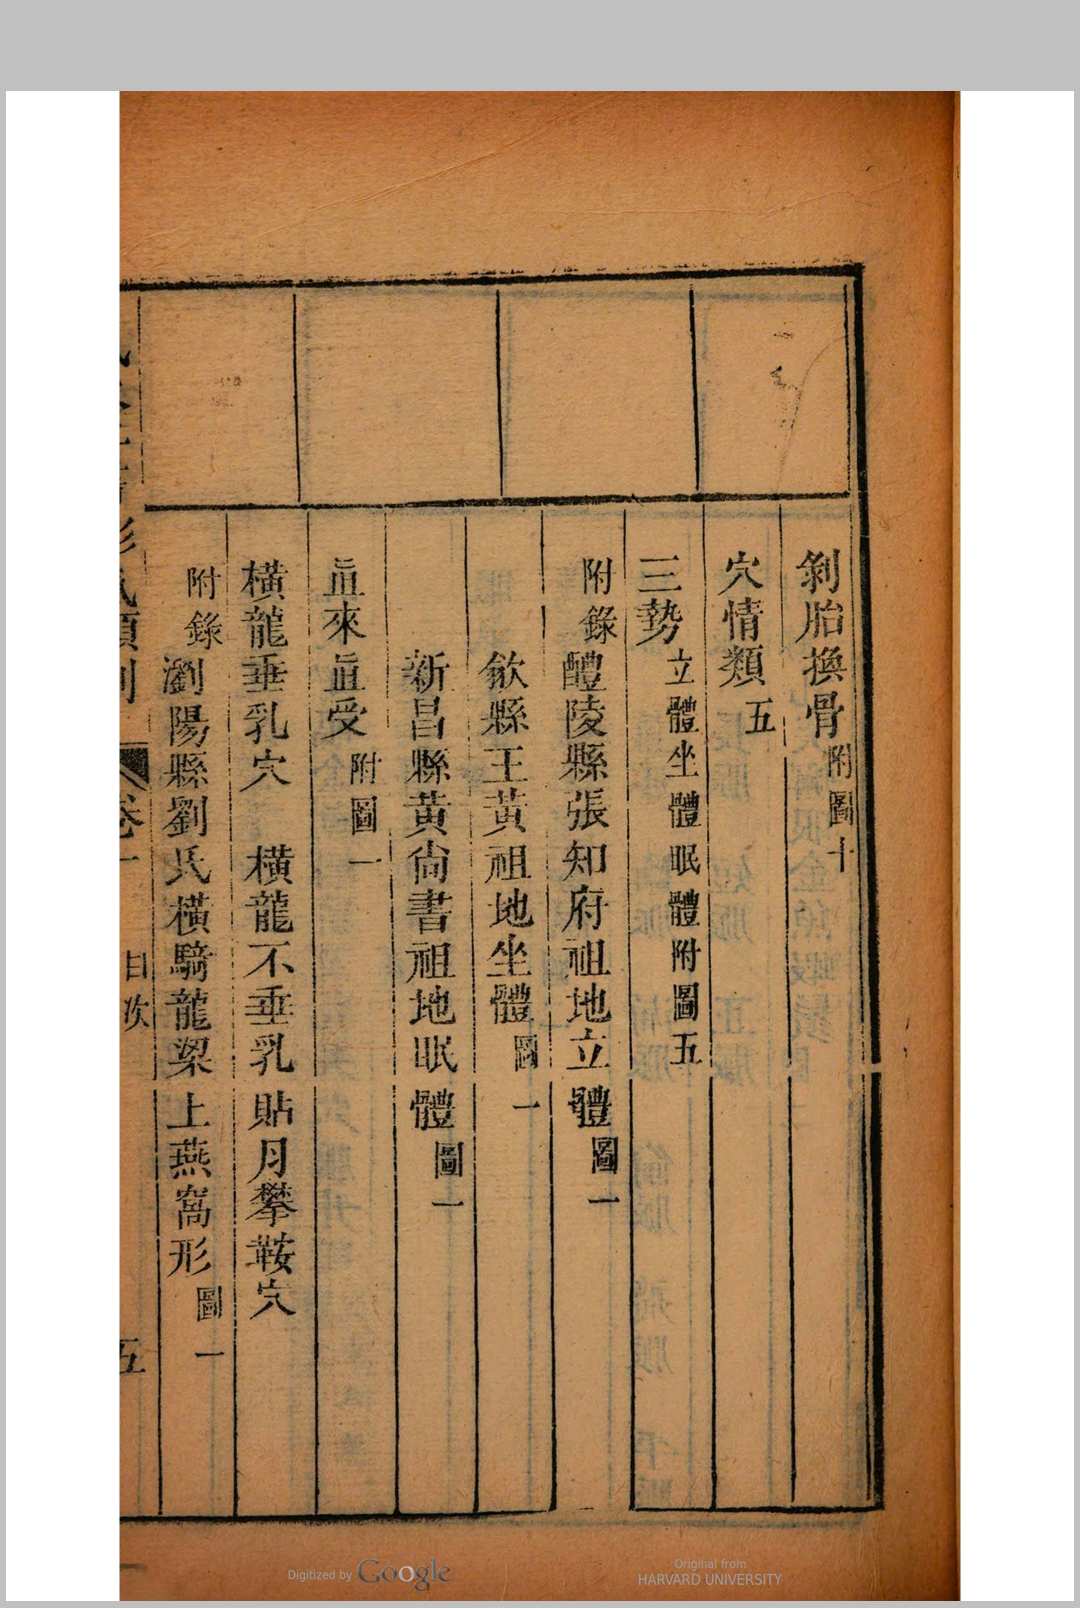 剝胎換骨附圖十
穴情類五
三勢立體坐體眠體附圖五
附錄醴陵縣張知府祖地立體圖一
歙縣王黃祖地坐體圖一
新昌縣黃尚書祖地眠體圖一
直來直受附圖一
橫龍垂乳穴 橫龍不垂乳貼月攀鞍穴
附錄瀏陽縣劉氏橫騎龍梁上燕窩形圖一
卷一 目次 五
Digitized by Google
Original from
HARVARD UNIVERSITY